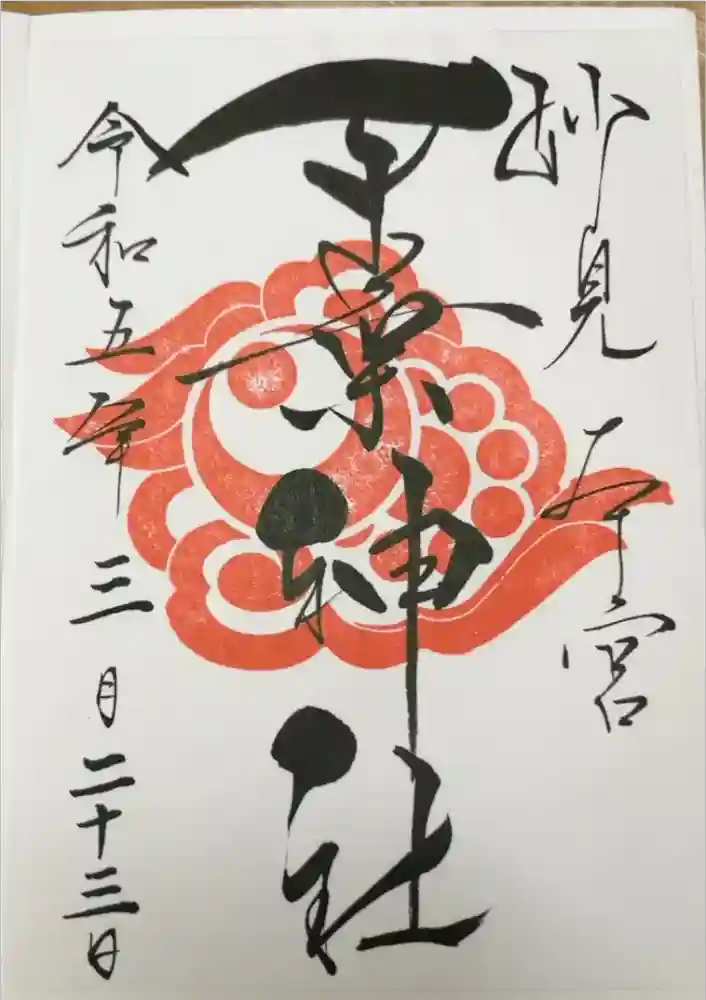 妙見本宮
千葉神社
令和五年三月二十三日